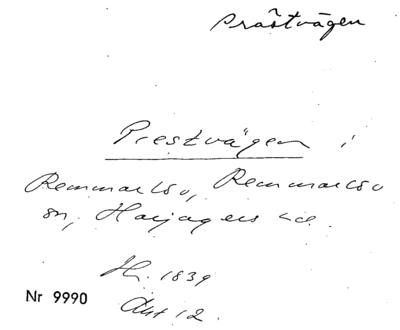 Prästvägen
Prestvägen i
Remmarlöv, Remmarlöv
sn, Harjagers hd.
Hr. 1839
Nr 9990
Akt 12.